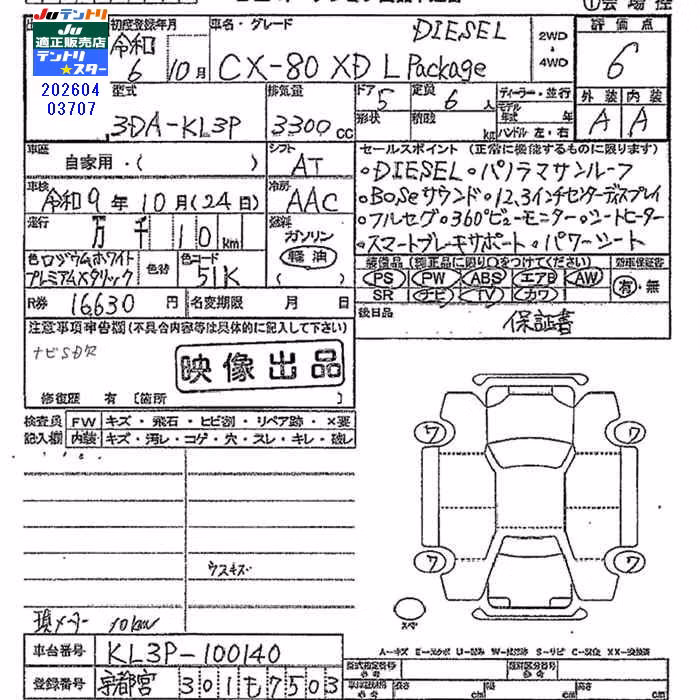 JU テントリ
適正販売店
テントリ
★スター
202604
03707
初度登録年月
令和
6 10月
車名・グレード
DIESEL
CX-80 XD L Package
2WD
4WD
評価点
6
外装 内装
A A
型式
3DA-KL3P
排気量
3300 cc
ドア
5
形状
定員
6 人
積載
kg
ディーラー・並行
モデル
年式 年
ハンドル 左・右
車歴
自家用・( )
シフト
AT
セールスポイント (正常に機能するものに限ります)
・DIESEL・パノラマサンルーフ
・BoSeサウンド・12.3インチセンターディスプレイ
・フルセグ・360°ビューモニター・シートヒーター
・スマートブレーキサポート・パワーシート
車検
令和9年10月(24日)
冷房
AAC
走行
万 千 10 km
燃料
ガソリン
軽油
色 ロジウムホワイト
プレミアムメタリック
色替
色コード
51K
装備品 (純正品に限り○をつけてください)
PS PW ABS エアB AW
SR ナビ TV カワ
新車保証書
有・無
R券 16,630 円
名変期限 月 日
後日品
保証書
注意事項申告欄(不具合内容等は具体的に記入して下さい)
ナビSD欠
映像出品
修復歴 有 [箇所
検査員
記入欄
FW キズ・飛石・ヒビ割・リペア跡・×要
内装 キズ・汚レ・コゲ・穴・スレ・キレ・破レ
ワ ワ
ワ ワ
ウスキズ
現メーター 10km
スペア
車台番号 KL3P-100140
登録番号 宇都宮 301 も 7503
型式指定番号
類別区分番号
長さ cm